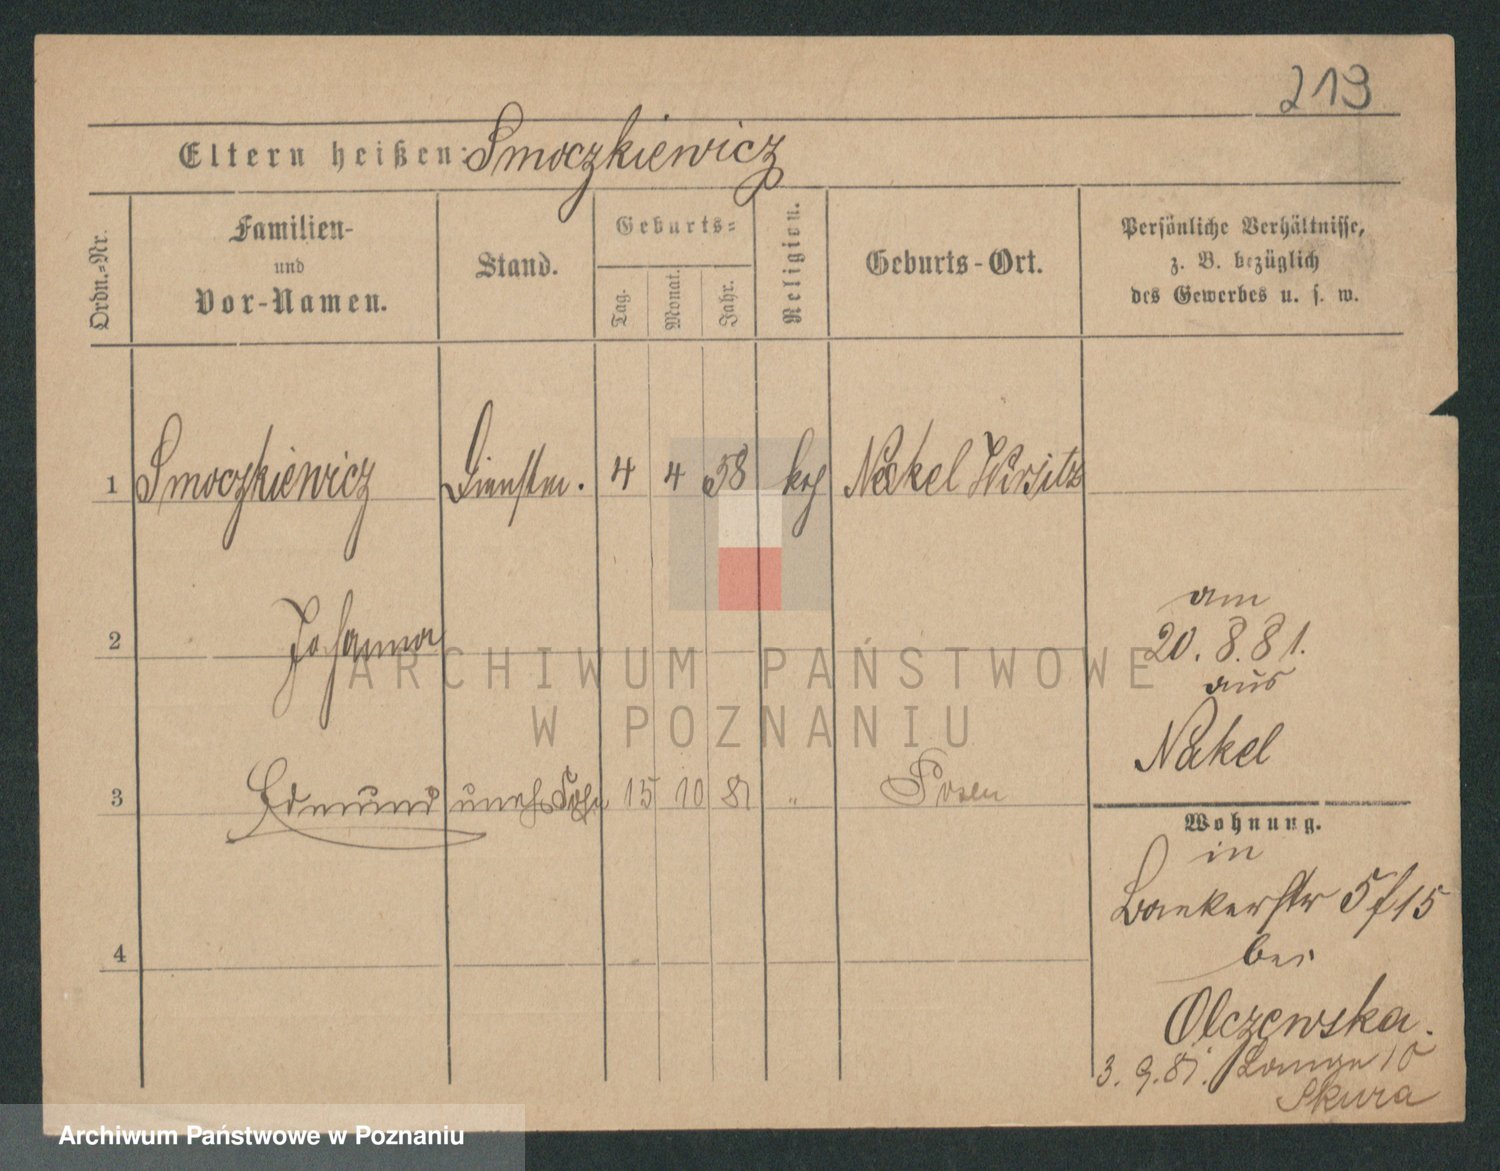 213
Eltern heißen: Smoczkiewicz
Ordn.-Nr.
Familien-
und
Vor-Namen.
Stand.
Geburts-
Tag.
Monat.
Jahr.
Religion.
Geburts-Ort.
Persönliche Verhältnisse,
z. B. bezüglich
des Gewerbes u. s. w.
1 Smoczkiewicz 4 4 58 Nakel Wirsitz
2 Johanna
am
20. 8. 81.
aus
Nakel
3 Edmund 15 10 81 " Posen
Wohnung.
in
5/15
bei
Olczewska.
4
3. 9. 81. Lange 10
Skura
ARCHIWUM PAŃSTWOWE
W POZNANIU
Archiwum Państwowe w Poznaniu